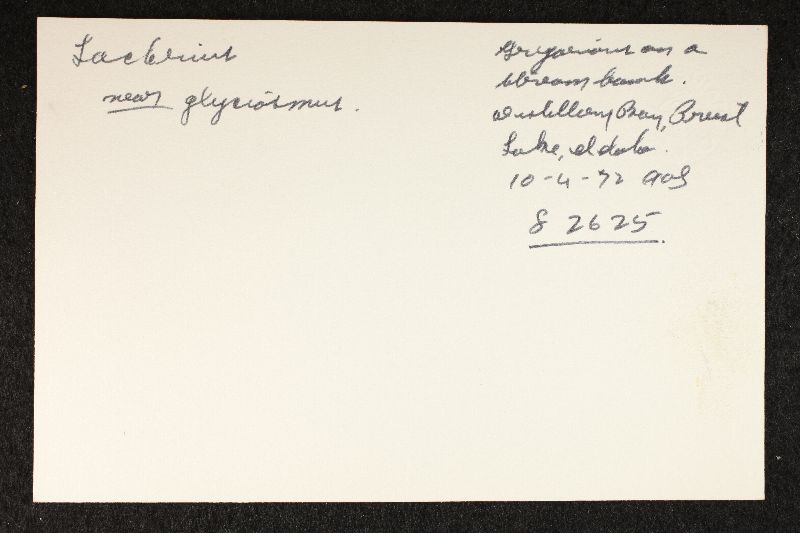 Lactarius
near glyciosmus.
Gregarious on a
stream bank.
Distillery Bay, Priest
Lake, Idaho.
10-4-72 AOS
S 2625